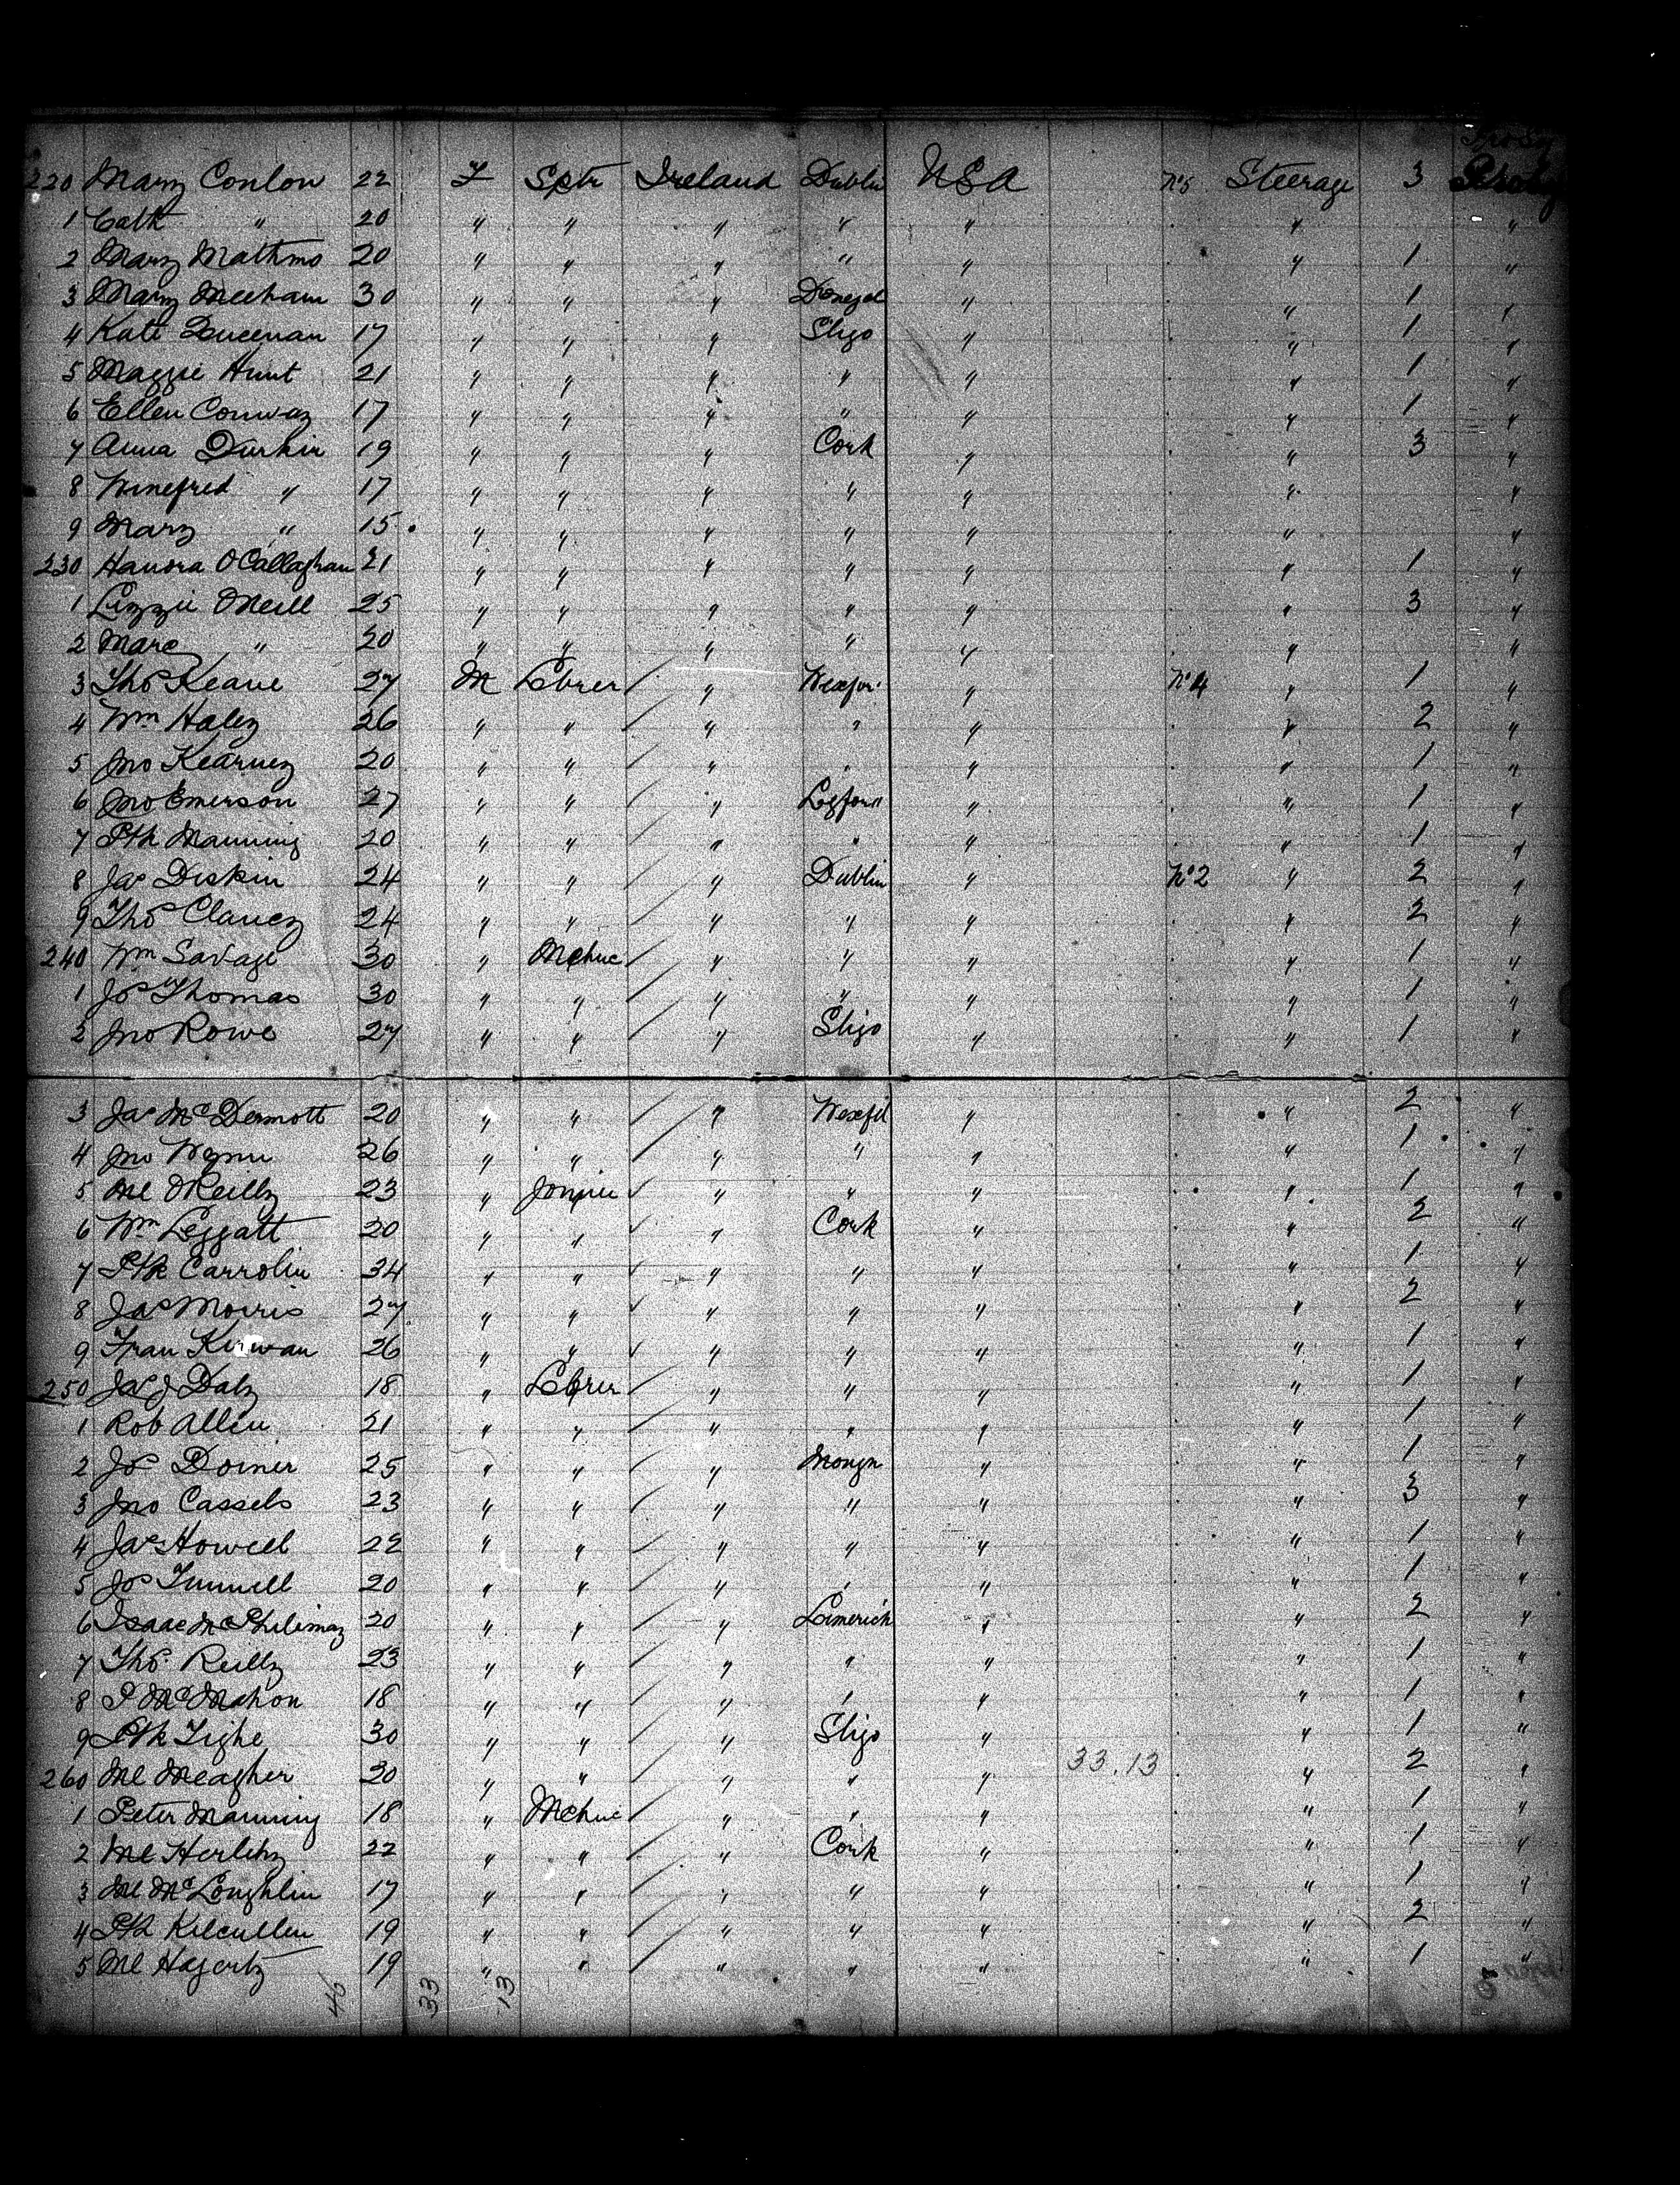 220 Mary Conlon 22 F Sptr Ireland Dublin USA No5 Steerage 3
1 Cath " 20 " " " " " " "
2 Mary 20 " " " " " " 1 "
3 Mary Meeham 30 " " " Donegal " " 1 "
4 Kate 17 " " " Sligo " " 1 "
5 Maggie Hunt 21 " " " " " " 1 "
6 Ellen Conway 17 " " " " " " 1 "
7 Anna Durkin 19 " " " Cork " " 3 "
8 Winefred " 17 " " " " " " "
9 Mary " 15 " " " " " " "
230 Hanora O'Callaghan 21 " " " " " " 1 "
1 Lizzie O'Neill 25 " " " " " " 3 "
2 " 20 " " " " " " "
3 Thos Keane 27 M Lbrer " Wexfor " No4 " 1 "
4 Wm Haley 26 " " " " " " 2 "
5 Jno Kearney 20 " " " " " " 1 "
6 Jno Emerson 27 " " " " " 1 "
7 Ptk Manning 20 " " " " " " 1 "
8 Jas Diskin 24 " " " Dublin " No2 " 2 "
9 Thos Clancy 24 " " " " " " 2 "
240 Wm Savage 30 " Mchnc " " " " 1 "
1 Jos Thomas 30 " " " " " " 1 "
2 Jno Rowe 27 " " " Sligo " " 1 "
3 Jas McDermott 20 " " " Wexfd " " 2 "
4 Jno Wynn 26 " " " " " " 1 "
5 Ml O'Reilly 23 " " " " " 1 "
6 Wm Leggatt 20 " " " Cork " " 2 "
7 Ptk Carrolin 34 " " " " " " 1 "
8 Jas Morris 27 " " " " " " 2 "
9 Fran Kirwan 26 " " " " " " 1 "
250 Jas J Daly 18 " Lbrer " " " " 1 "
1 Rob Allen 21 " " " " " " 1 "
2 Jos 25 " " " " " 1 "
3 Jno Cassels 23 " " " " " " 3 "
4 Jas Howell 22 " " " " " " 1 "
5 Jos 20 " " " " " " 1 "
6 Isaac McPhilimay 20 " " " Limerick " " 2 "
7 Thos Reilly 23 " " " " " " 1 "
8 P McMahon 18 " " " " " " 1 "
9 Ptk Tighe 30 " " " Sligo " " 1 "
260 Ml Meagher 20 " " " " " 33.13 " 2 "
1 Peter Manning 18 " Mchnc " " " " 1 "
2 Ml Herlihy 22 " " " Cork " " 1 "
3 Ml McLoughlin 17 " " " " " " 1 "
4 Ptk Kilcullen 19 " " " " " " 2 "
5 Ml Hagerty 19 " " " " " " 1 "
46 33 13